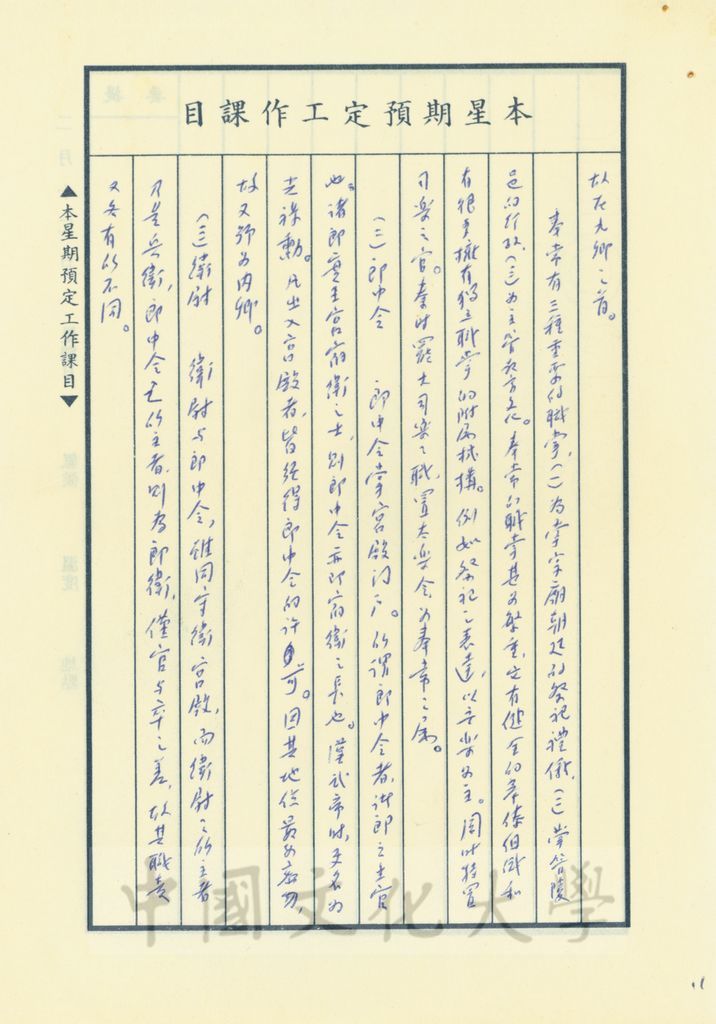 本星期預定工作課目
故在九卿之首。
奉常有三種重要的職掌，(一)為掌宗廟朝廷的祭祀禮儀，(二)掌管陵
邑的行政，(三)為主管教育文化。奉常的職掌甚為繁重，它有健全的
有很多擁有獨立職掌的附屬機構。例如祭祀之表達，以音樂為主。周時特置
司樂之官。秦時罷大司樂之職，置太樂令，為奉常之屬。
(二)郎中令　郎中令掌宮殿門戶。所謂郎中令者，諸郎之主官
也。諸郎實王宮宿衛之士，則郎中令亦即宿衛之長也。漢武帝時，更名為
光祿勳。凡出入宮殿者，皆經得郎中令的許可。因其地位最為密切，
故又號為內卿。
(三)衛尉　衛尉與郎中令，雖同守衛宮殿，而衛尉之所主者
乃是兵衛，郎中令之所主者，則為郎衛，僅官與卒之差，故其職責
又各有所不同。
▲本星期預定工作課目▼
中國文化大學